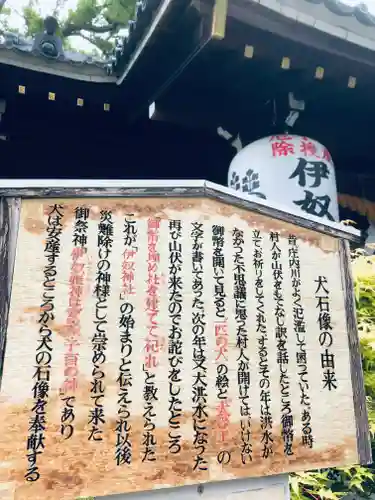 犬石像の由来
昔、庄内川がよく氾濫して困っていた。ある時
村人が山伏をもてなし訳を話したところ御幣を
立てお祈りをしてくれた。するとその年は洪水が
なかった不思議に思った村人が開けてはいけない
御幣を開いて見ると一匹の犬の絵と
文字が書いてあった。次の年は又大洪水になった
再び山伏が来たのでお詫びをしたところ
御幣を埋め社を建てて祀れと教えられた
これが「伊奴神社」の始まりと伝えられ以後
災難除けの神様として崇められて来た
御祭神「伊奴姫神は安産、子育の神であり
犬は安産するところから犬の石像を奉献する
伊奴